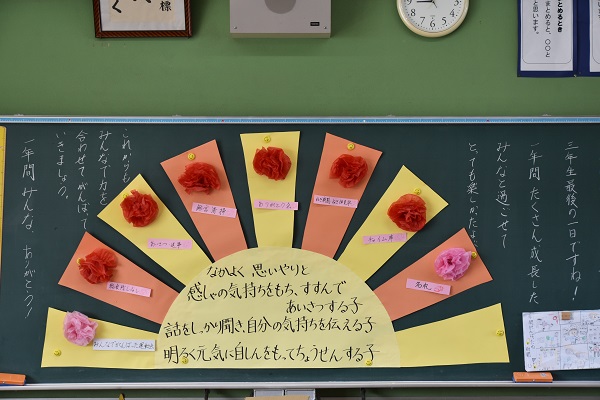 標
く
まとめるとき
まとめると、〇〇と
思います。
三年生最後の一日ですね！
一年間たくさん成長した
みんなと過ごせて
とても楽しかったよ。
なかよく 思いやりと
感しゃの気持ちをもち、すすんで
あいさつする子
話をしっかり聞き、自分の気持ちを伝える子
明るく元気に自しんをもってちょうせんする子
これからも
みんなで力を
合わせてがんばって
いきましょう。
一年間みんな、ありがとう！